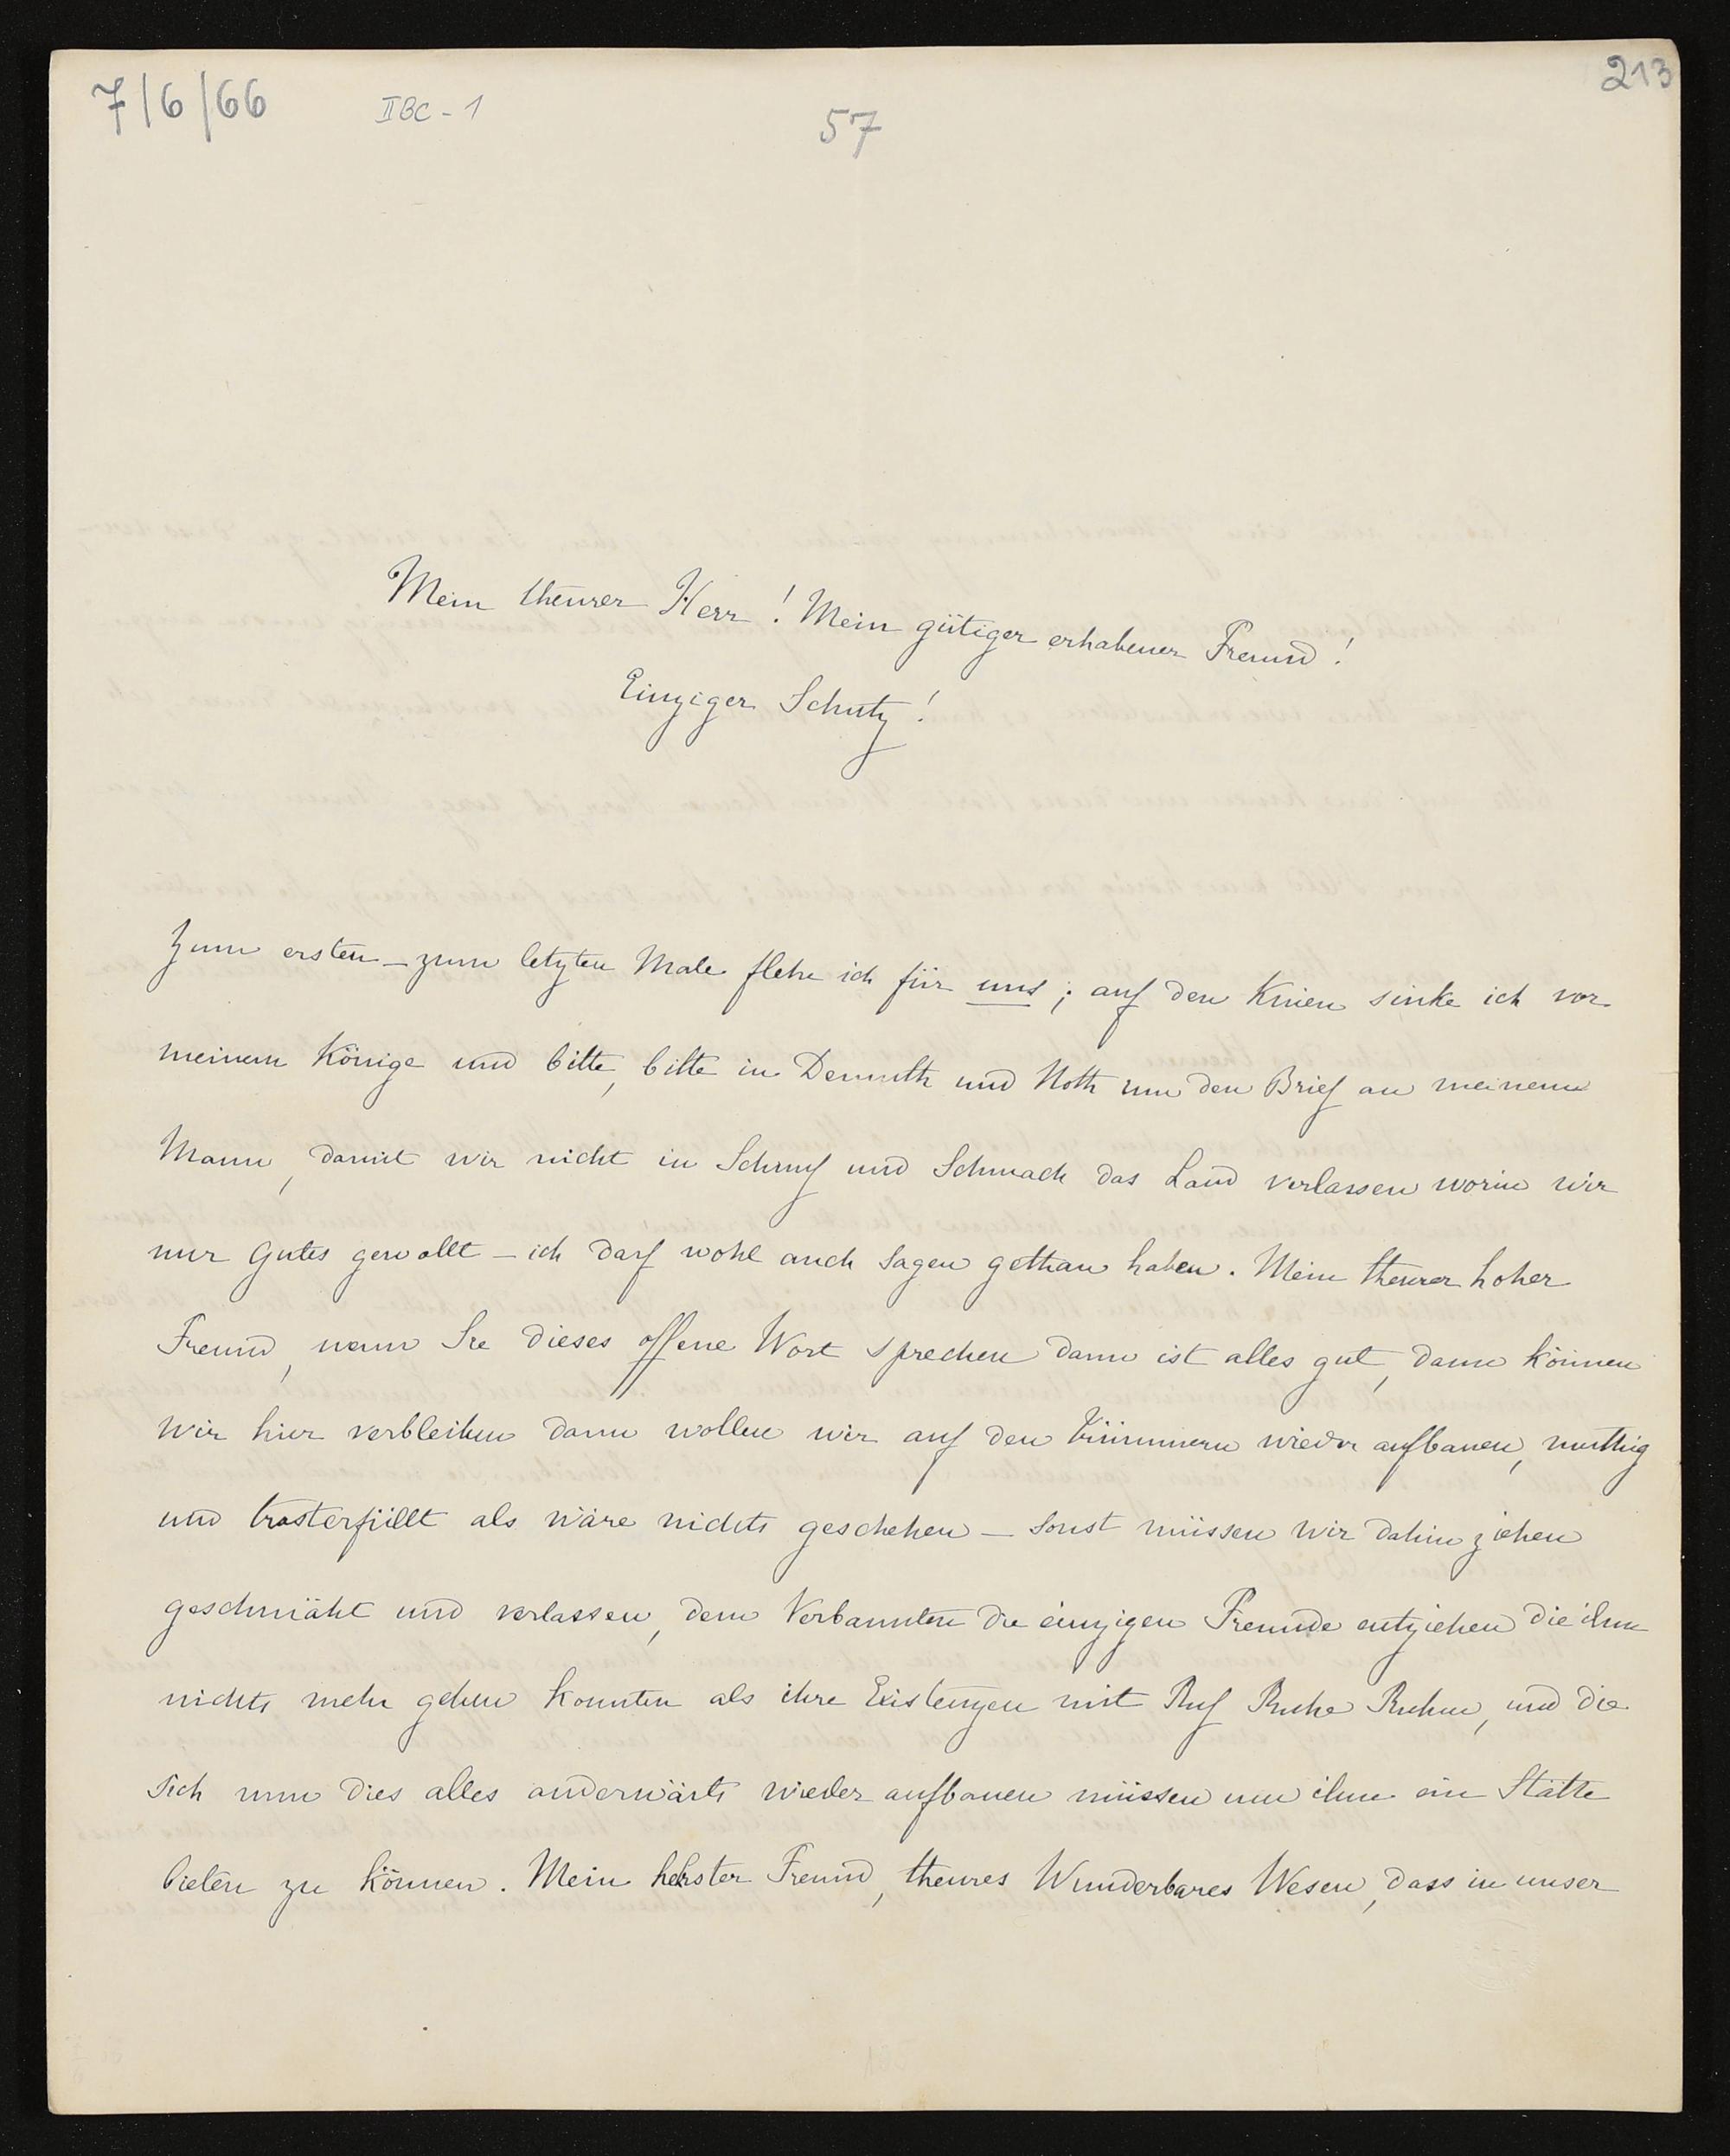 7/6/66 IIBC - 1 57 213
Mein theurer Herr! Mein gütiger erhabener Freund!
Einziger Schutz!
Zum ersten – zum letzten Male flehe ich für uns; auf den Knieen sinke ich vor
meinem Könige und bitte, bitte in Demuth und Noth um den Brief an meinem
Mann, damit wir nicht in Schimpf und Schmach das Land verlassen worin wir
nur Gutes gewollt – ich darf wohl auch sagen gethan haben. Mein theurer hoher
Freund, wenn Sie dieses offene Wort sprechen dann ist alles gut, dann können
wir hier verbleiben dann wollen wir auf den Trümmern wieder aufbauen, muthig
und trosterfüllt als wäre nichts geschehen – sonst müssen wir dahin ziehen
geschmäht und verlassen, dem Verbannten die einzigen Freunde entziehen die ihm
nichts mehr geben konnten als ihre Existenzen mit Ruf Ruhe Ruhm, und die
sich nun dies alles anderwärts wieder aufbauen müssen um ihm ein Stätte
bieten zu können. Mein hehrster Freund, theures Wunderbares Wesen, dass in unser